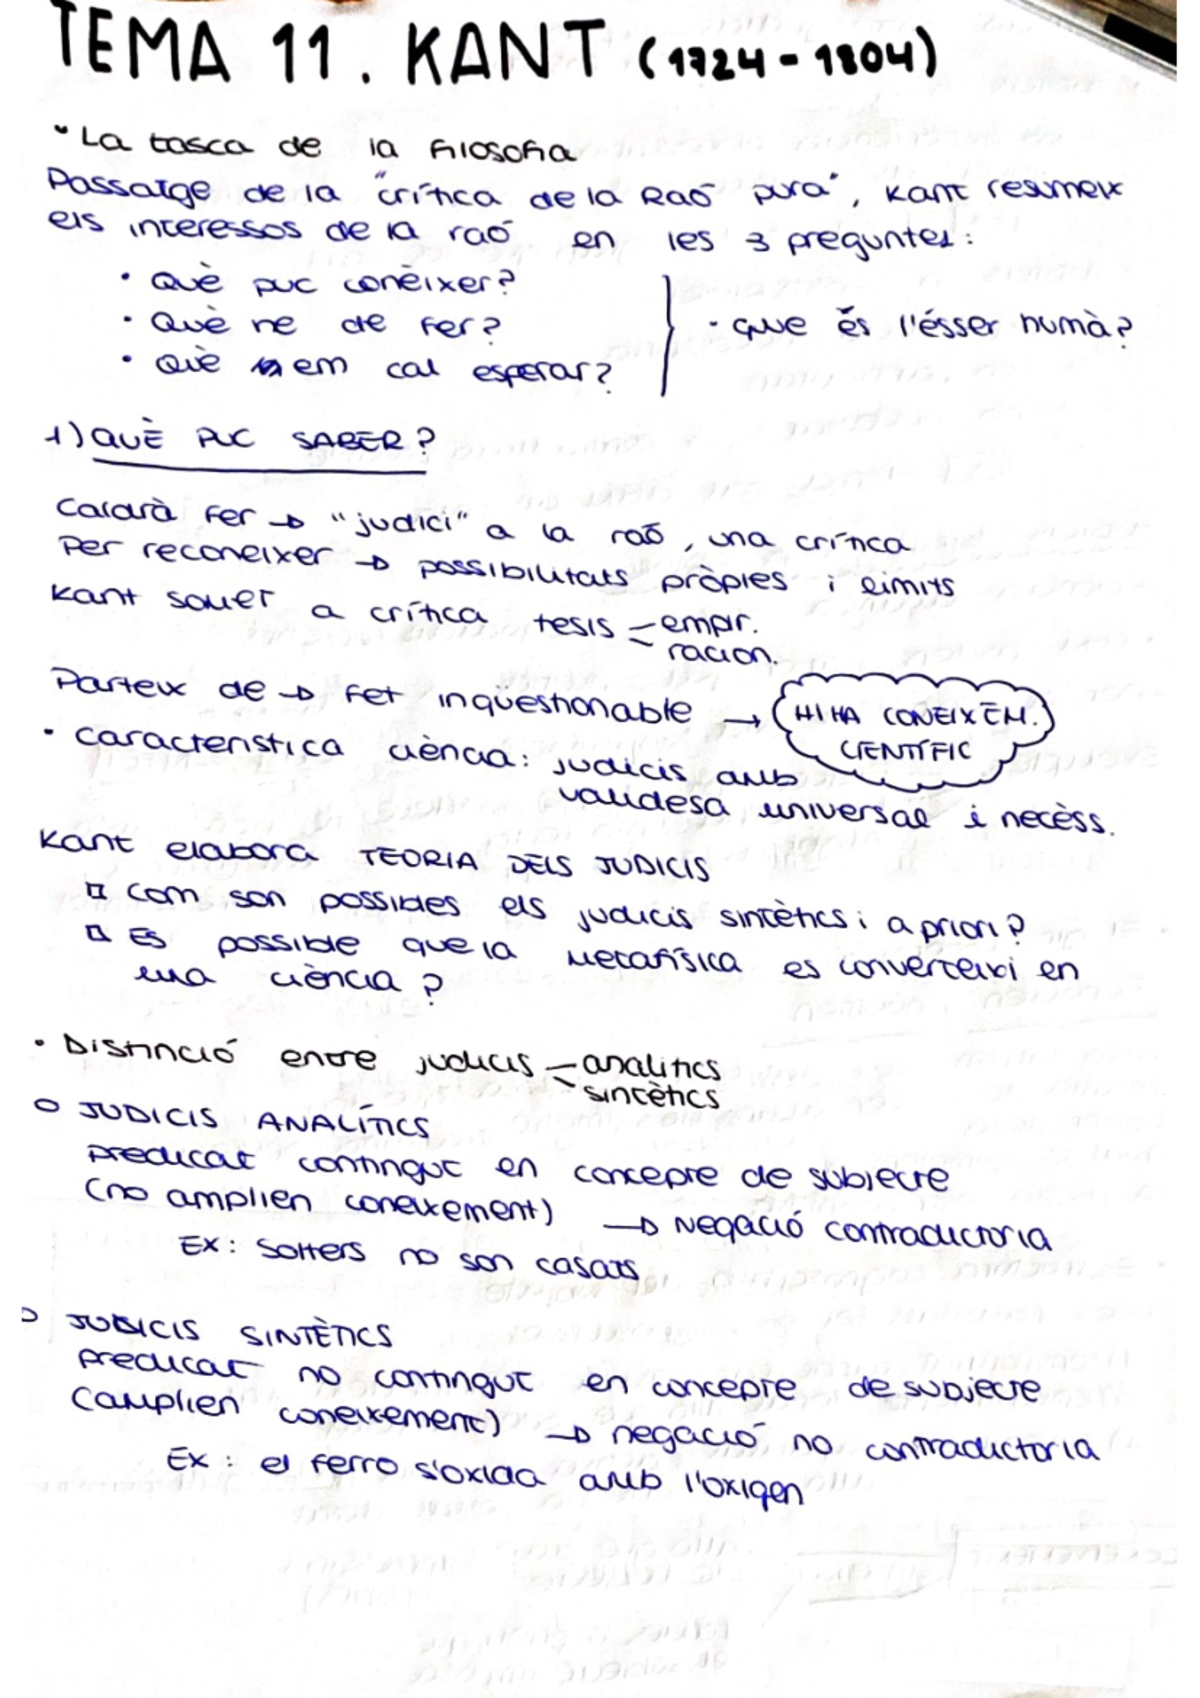 TEMA 11. KANT (1724-1804)
La tasca de la filosofia
Passatge de la "crítica de la Raó pura", Kant resumeix
els interessos de la raó en les 3 preguntes:
• Què puc conèixer?
• Què he de fer?
• Què em cal esperar?
• que és l'ésser humà?
1) QUÈ PUC SABER?
Caldrà fer → "judici" a la raó, una crítica
Per reconeixer → possibilitats pròpies i límits
Kant sotmet a crítica tesis - empir.
racion.
Parteix de → fet inqüestionable → HI HA CONEIXEM.
CIENTÍFIC
• característica ciència: judicis amb
validesa universal i necèss.
Kant elabora TEORIA DELS JUDICIS
¤ com son possibles els judicis sintètics i a priori?
¤ Es possible que la metafísica es converteixi en
una ciència?
• Distinció entre judicis - analítics
sintètics
o JUDICIS ANALÍTICS
predicat contingut en concepte de subjecte
(no amplien coneixement) → Negació contradictoria
EX: Solters no son casats
o JUDICIS SINTÈTICS
predicat no contingut en concepte de subjecte
(amplien coneixement) → negació no contradictoria
Ex: el ferro s'oxida amb l'oxigen